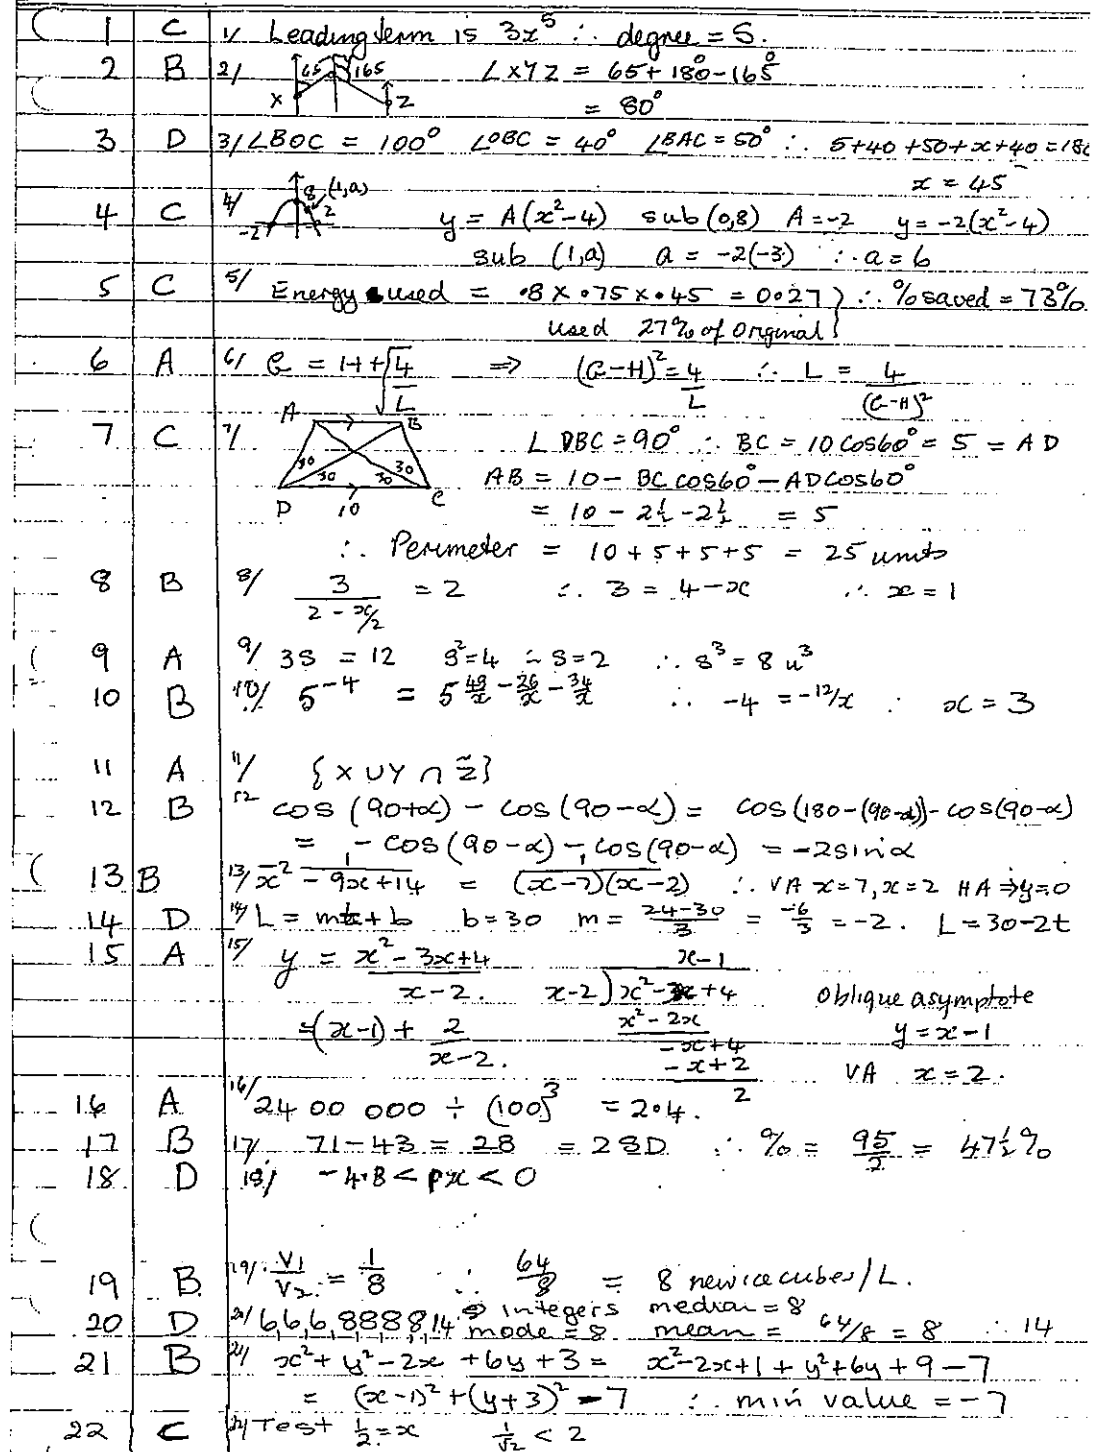 1 C 1/ Leading term is 3x⁵ ∴ degree = 5.
2 B 2/ 65 165 ∠XYZ = 65 + 180° - 165°
X Z = 80°
3 D 3/ ∠BOC = 100° ∠OBC = 40° ∠BAC = 50° ∴ 5+40+50+x+40 = 180
x = 45
4 C 4/ 8 (1,a) -2 2 y = A(x²-4) sub (0,8) A = -2 y = -2(x²-4)
sub (1,a) a = -2(-3) ∴ a = 6
5 C 5/ Energy used = .8 × .75 × .45 = 0.27 } ∴ % saved = 73%
used 27% of original }
6 A 6/ C = H + √(4/L) ⇒ (C-H)² = 4/L ∴ L = 4/(C-H)²
7 C 7/ A B ∠DBC = 90° ∴ BC = 10 cos60° = 5 = AD
30 30 30 30 AB = 10 - BC cos60° - AD cos60°
D 10 C = 10 - 2½ - 2½ = 5
∴ Perimeter = 10 + 5 + 5 + 5 = 25 units
8 B 8/ 3/(2 - x/2) = 2 ∴ 3 = 4 - x ∴ x = 1
9 A 9/ 3s = 12 s² = 4 ∴ s = 2 ∴ s³ = 8 u³
10 B 10/ 5⁻⁴ = 5 48/x - 26/x - 34/x ∴ -4 = -12/x ∴ x = 3
11 A 11/ {X ∪ Y ∩ Z̃}
12 B 12 cos (90+α) - cos (90-α) = cos(180-(90-α)) - cos(90-α)
= - cos(90-α) - cos(90-α) = -2sinα
13 B 13/ 1/(x² - 9x + 14) = 1/((x-7)(x-2)) ∴ VA x=7, x=2 HA ⇒ y=0
14 D 14/ L = mt + b b = 30 m = (24-30)/3 = -6/3 = -2. L = 30-2t
15 A 15/ y = (x² - 3x + 4)/(x-2). x-1
x-2) x² - 3x + 4 Oblique asymptote
= (x-1) + 2/(x-2). x² - 2x y = x-1
-x+4
-x+2 VA x = 2.
2
16 A 16/ 2400 000 ÷ (100)³ = 2.4.
17 B 17/ 71-43 = 28 = 2SD ∴ % = 95/2 = 47½%
18 D 18/ -4.8 < px < 0
19 B 19/ V1/V2 = 1/8 ∴ 64/8 = 8 new ice cubes/L.
20 D 20/ 6,6,6,8,8,8,8,14 integers median = 8
mode = 8 mean = 64/8 = 8 ∴ 14
21 B 21/ x² + y² - 2x + 6y + 3 = x²-2x+1 + y²+6y+9-7
= (x-1)² + (y+3)² - 7 ∴ min value = -7
22 C 22/ Test ½ = x 1/√2 < 2